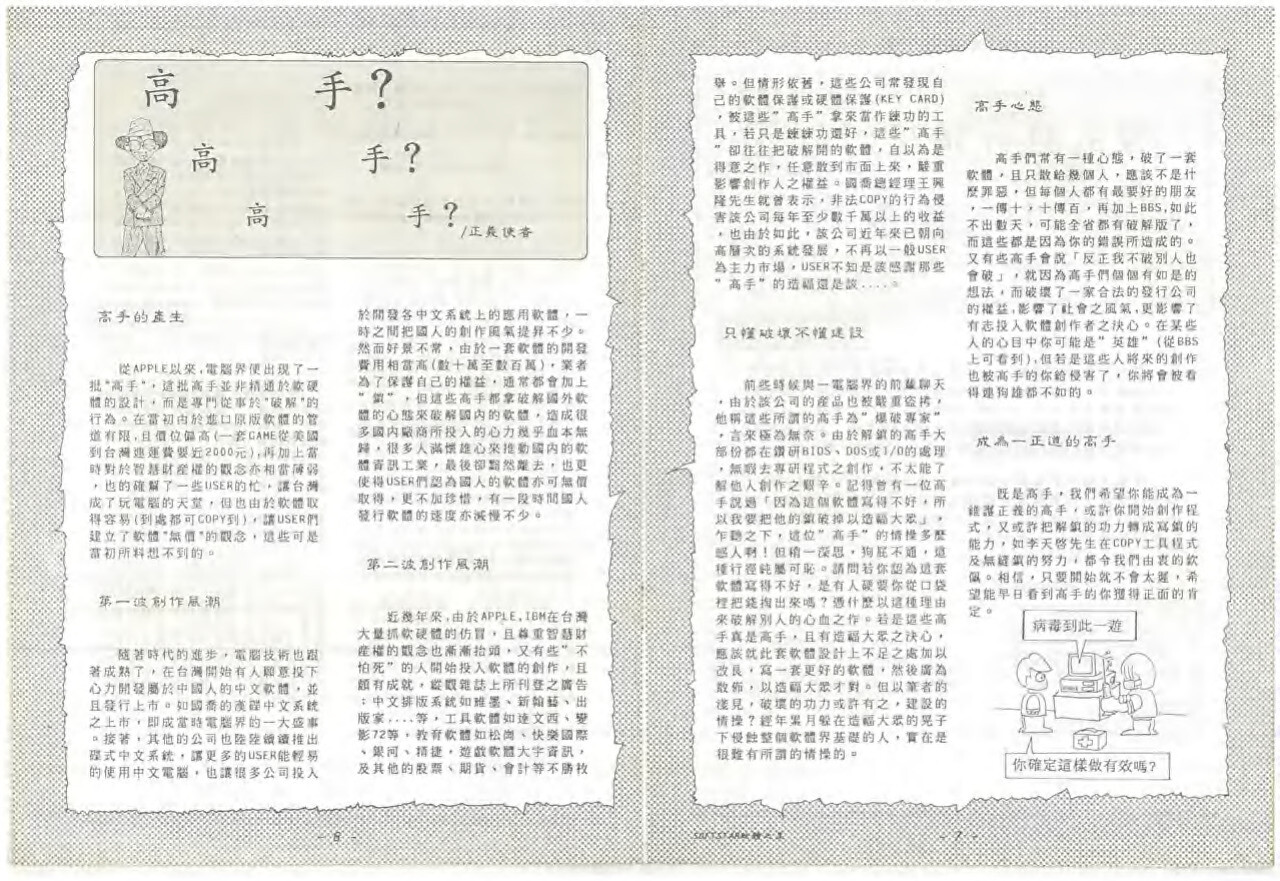 高 手？
高 手？
高 手？
/正義俠客
高手的產生
從APPLE以來，電腦界便出現了一
批"高手"，這批高手並非精通於軟硬
體的設計，而是專門從事於"破解"的
行為。在當初由於進口原版軟體的管
道有限，且價位偏高(一套GAME從美國
到台灣連運費要近2000元)，再加上當
時對於智慧財產權的觀念亦相當薄弱
，也的確幫了一些USER的忙，讓台灣
成了玩電腦的天堂，但也由於軟體取
得容易(到處都可COPY到)，讓USER們
建立了軟體"無價"的觀念，這些可是
當初所料想不到的。
第一波創作風潮
隨著時代的進步，電腦技術也跟
著成熟了，在台灣開始有人願意投下
心力開發屬於中國人的中文軟體，並
且發行上市。如國喬的漢碟中文系統
之上市，即成當時電腦界的一大盛事
。接著，其他的公司也陸陸續續推出
碟式中文系統，讓更多的USER能輕易
的使用中文電腦，也讓很多公司投入
於開發各中文系統上的應用軟體，一
時之間把國人的創作風氣提昇不少。
然而好景不常，由於一套軟體的開發
費用相當高(數十萬至數百萬)，業者
為了保護自己的權益，通常都會加上
"鎖"，但這些高手都拿破解國外軟
體的心態來破解國內的軟體，造成很
多國內廠商所投入的心力幾乎血本無
歸，很多人滿懷雄心來推動國內的軟
體資訊工業，最後卻黯然離去，也更
使得USER們認為國人的軟體亦可無價
取得，更不加珍惜，有一段時間國人
發行軟體的速度亦減慢不少。
第二波創作風潮
近幾年來，由於APPLE，IBM在台灣
大量抓軟硬體的仿冒，且尊重智慧財
產權的觀念也漸漸抬頭，又有些"不
怕死"的人開始投入軟體的創作，且
頗有成就，縱觀雜誌上所刊登之廣告
：中文排版系統如維墨、新翰藝、出
版家....等，工具軟體如達文西、變
影72等，教育軟體如松崗、快樂國際
、銀河、精捷，遊戲軟體大宇資訊，
及其他的股票、期貨、會計等不勝枚
- 6 -
舉。但情形依舊，這些公司常發現自
己的軟體保護或硬體保護(KEY CARD)
，被這些"高手"拿來當作練功的工
具，若只是練練功還好，這些"高手
"卻往往把破解開的軟體，自以為是
得意之作，任意散到市面上來，嚴重
影響創作人之權益。國喬總經理王興
隆先生就曾表示，非法COPY的行為侵
害該公司每年至少數千萬以上的收益
，也由於如此，該公司近年來已朝向
高層次的系統發展，不再以一般USER
為主力市場，USER不知是該感謝那些
"高手"的造福還是該....。
只懂破壞不懂建設
前些時候與一電腦界的前輩聊天
，由於該公司的產品也被嚴重盜拷，
他稱這些所謂的高手為"爆破專家"
，言來極為無奈。由於解鎖的高手大
部份都在鑽研BIOS、DOS或I/O的處理
，無暇去專研程式之創作，不太能了
解他人創作之艱辛。記得曾有一位高
手說過「因為這個軟體寫得不好，所
以我要把他的鎖破掉以造福大眾」，
乍聽之下，這位"高手"的情操多麼
感人啊！但稍一深思，狗屁不通，這
種行徑純屬可恥。請問若你認為這套
軟體寫得不好，是有人硬要你從口袋
裡把錢掏出來嗎？憑什麼以這種理由
來破解別人的心血之作。若是這些高
手真是高手，且有造福大眾之決心，
應該就此套軟體設計上不足之處加以
改良，寫一套更好的軟體，然後廣為
散佈，以造福大眾才對。但以筆者的
淺見，破壞的功力或許有之，建設的
情操？經年累月躲在造福大眾的晃子
下侵蝕整個軟體界基礎的人，實在是
很難有所謂的情操的。
高手心態
高手們常有一種心態，破了一套
軟體，且只散給幾個人，應該不是什
麼罪惡，但每個人都有最要好的朋友
，一傳十，十傳百，再加上BBS，如此
不出數天，可能全省都有破解版了，
而這些都是因為你的錯誤所造成的。
又有些高手會說「反正我不破別人也
會破」，就因為高手們個個有如是的
想法，而破壞了一家合法的發行公司
的權益，影響了社會之風氣，更影響了
有志投入軟體創作者之決心。在某些
人的心目中你可能是"英雄"(從BBS
上可看到)，但若是這些人將來的創作
也被高手的你給侵害了，你將會被看
得連狗雄都不如的。
成為一正道的高手
既是高手，我們希望你能成為一
維護正義的高手，或許你開始創作程
式，又或許把解鎖的功力轉成寫鎖的
能力，如李天啓先生在COPY工具程式
及無縫鎖的努力，都令我們由衷的欽
佩。相信，只要開始就不會太遲，希
望能早日看到高手的你獲得正面的肯
定。
病毒到此一遊
你確定這樣做有效嗎？
SOFTSTAR軟體之星
- 7 -